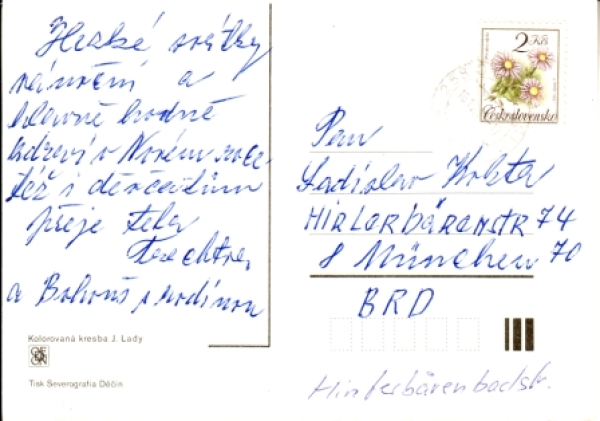 Hezké svátky
vánoční a
hlavně hodně
zdraví v Novém roce
též i děvčatům
přeje teta
a Bohouš s rodinou
Kolorovaná kresba J. Lady
Tisk Severografia Děčín
2 Kčs
Československo
Pan
Ladislav
HINTERBÄRENSTR 74
8 München 70
BRD
Hinterbärenbadstr.